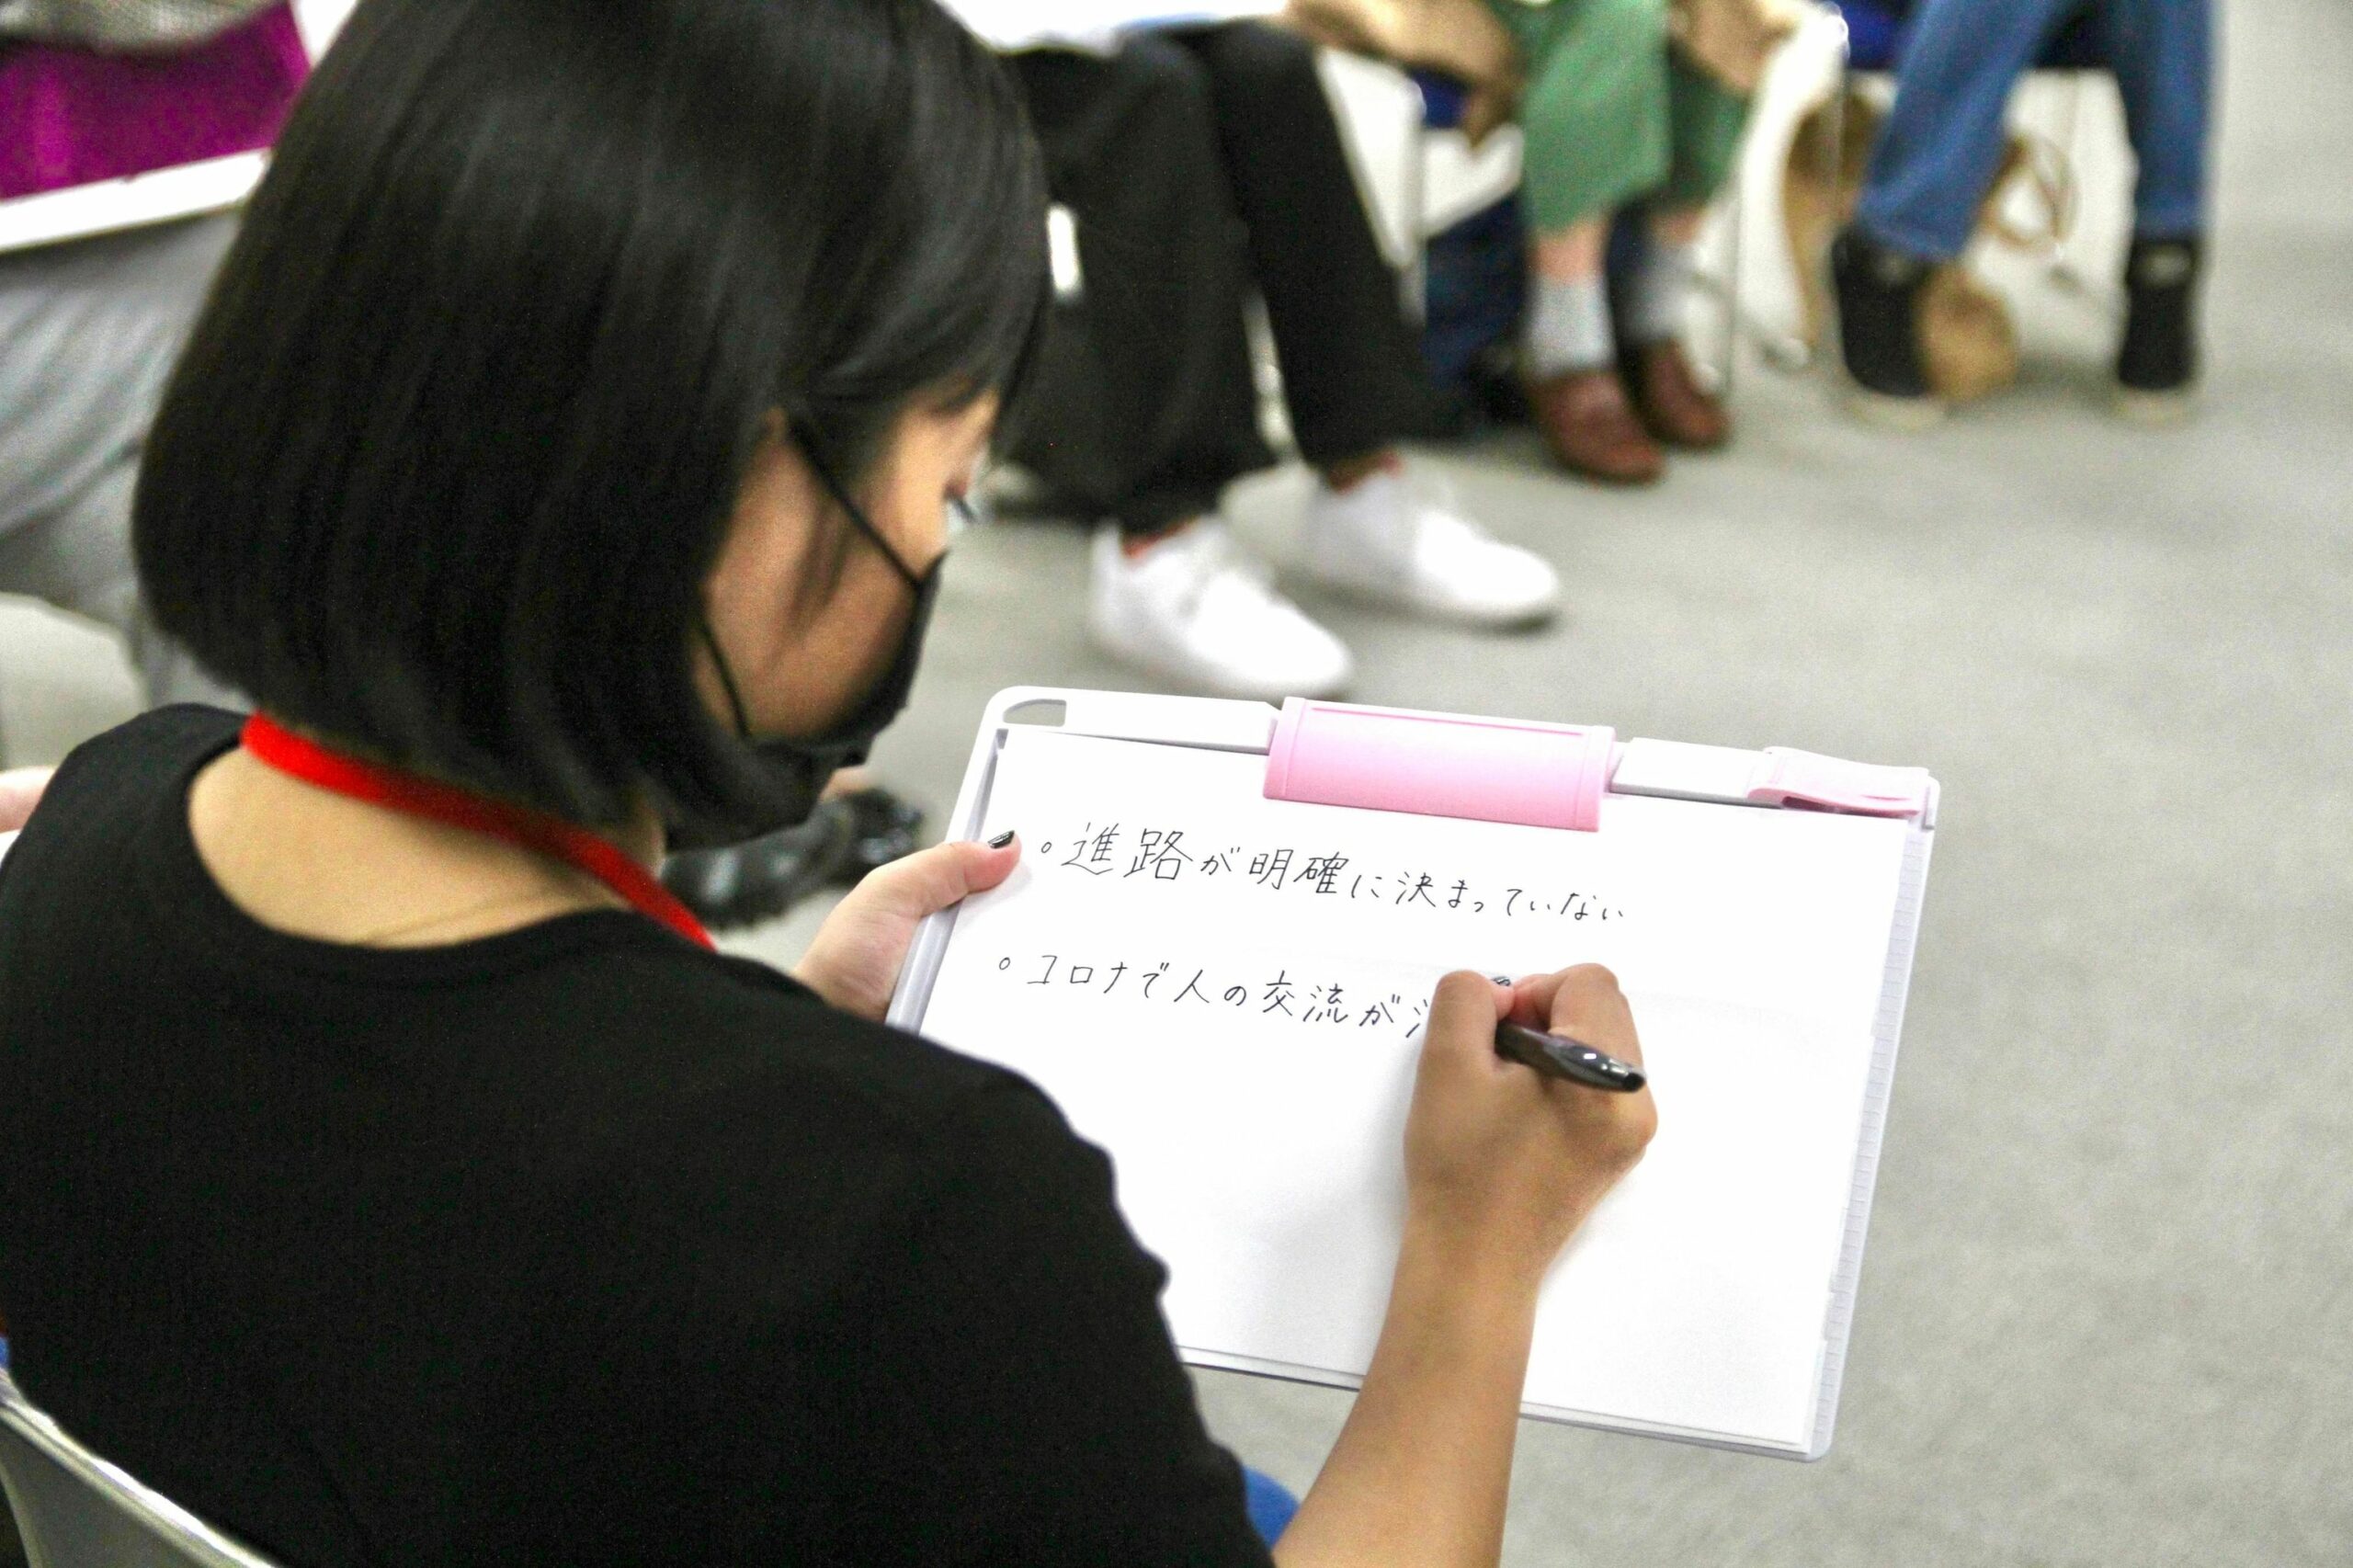 。進路が明確に決まっていない
。コロナで人の交流が